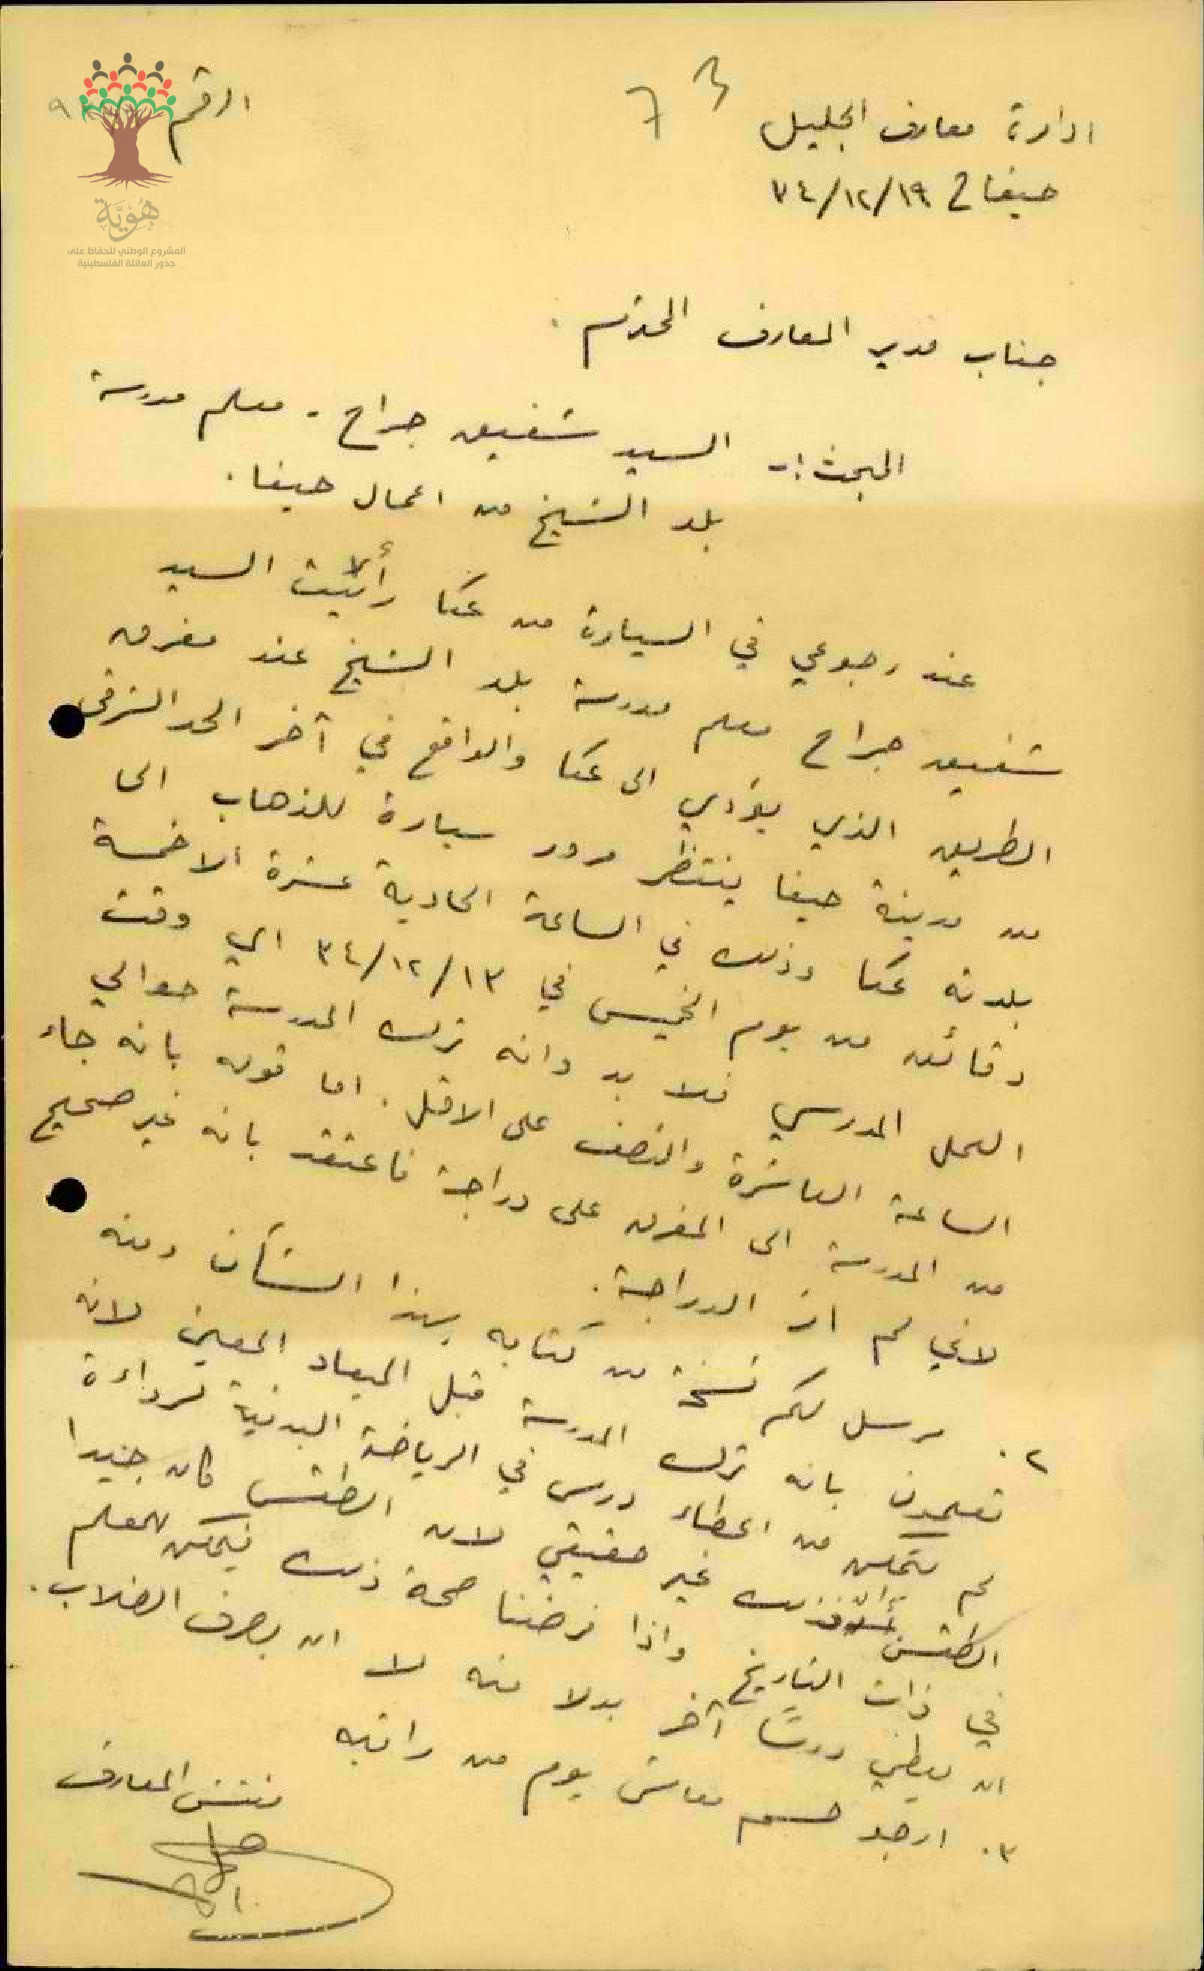 ادارة معارف الجليل
الرقم
حيفا في ٣٤/١٢/١٩
73
هُوِيَّة
المشروع الوطني للحفاظ على
جذور العائلة الفلسطينية
جناب مدير المعارف المحترم .
المبحث :- السيد شفيق جراح - معلم مدرسة
بلد الشيخ من اعمال حيفا .
عند رجوعي في السيارة من عكا رأيت السيد
شفيق جراح معلم مدرسة بلد الشيخ عند مفرق
الطريق الذي يؤدي الى عكا والواقع في آخر الحد الشرقي
من مدينة حيفا ينتظر مرور سيارة للذهاب الى
بلدته عكا وذلك في الساعة الحادية عشرة الا خمسة
دقائق من يوم الخميس في ٣٤/١٢/١٣ اي وقت
العمل المدرسي فلا بد وانه ترك المدرسة حوالي
الساعة العاشرة والنصف على الاقل . اما قوله بانه جاء
من المدرسة الى المفرق على دراجة فاعتقد بانه غير صحيح
لاني لم ار الدراجة .
٢. مرسل لكم نسخة من كتابه بهذا الشأن ومنه
تعلمون بانه ترك المدرسة قبل الميعاد المعين لانه
لم يتمكن من اعطاء درس في الرياضة البدنية لرداءة
الطقس فذلك غير حقيقي لان الطقس كان جيدا
في ذات التاريخ واذا فرضنا صحة ذلك فيمكن للمعلم
ان يعطي درسًا آخر بدلا منه لا ان يصرف الطلاب .
٣. ارجو حسم معاش يوم من راتبه
مفتش المعارف